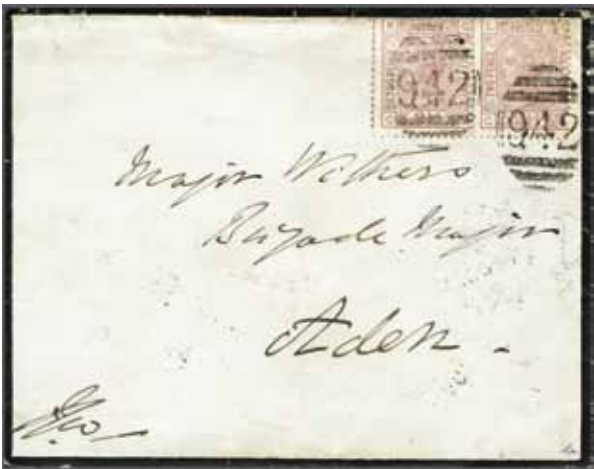 942 942
Major Withers
Brigade Major
Aden -